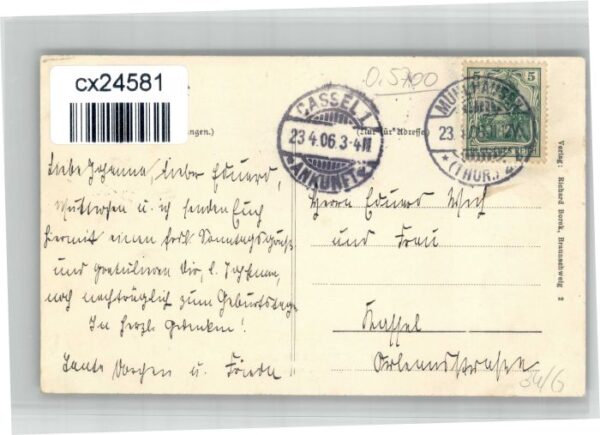 cx24581
0.5700
5
CASSEL 1
23.4.06.3-4N
*ANKUNFT*
MÜHLHAUSEN
23.
*(THÜR.) 2*
ungen.)
(Nur für Adresse)
Liebe Johanna, lieber Eduard,
u. ich senden Euch
hiermit einen frdl. Sonntagsgruß
und gratulieren Dir, l. Johanna,
noch nachträglich zum Geburtstage.
In herzl. Gedenken!
Tante u. Frieda
Herrn Eduard
und Frau
Kassel
Orleansstrasse
34/6
Verlag: Richard Borek, Braunschweig 2